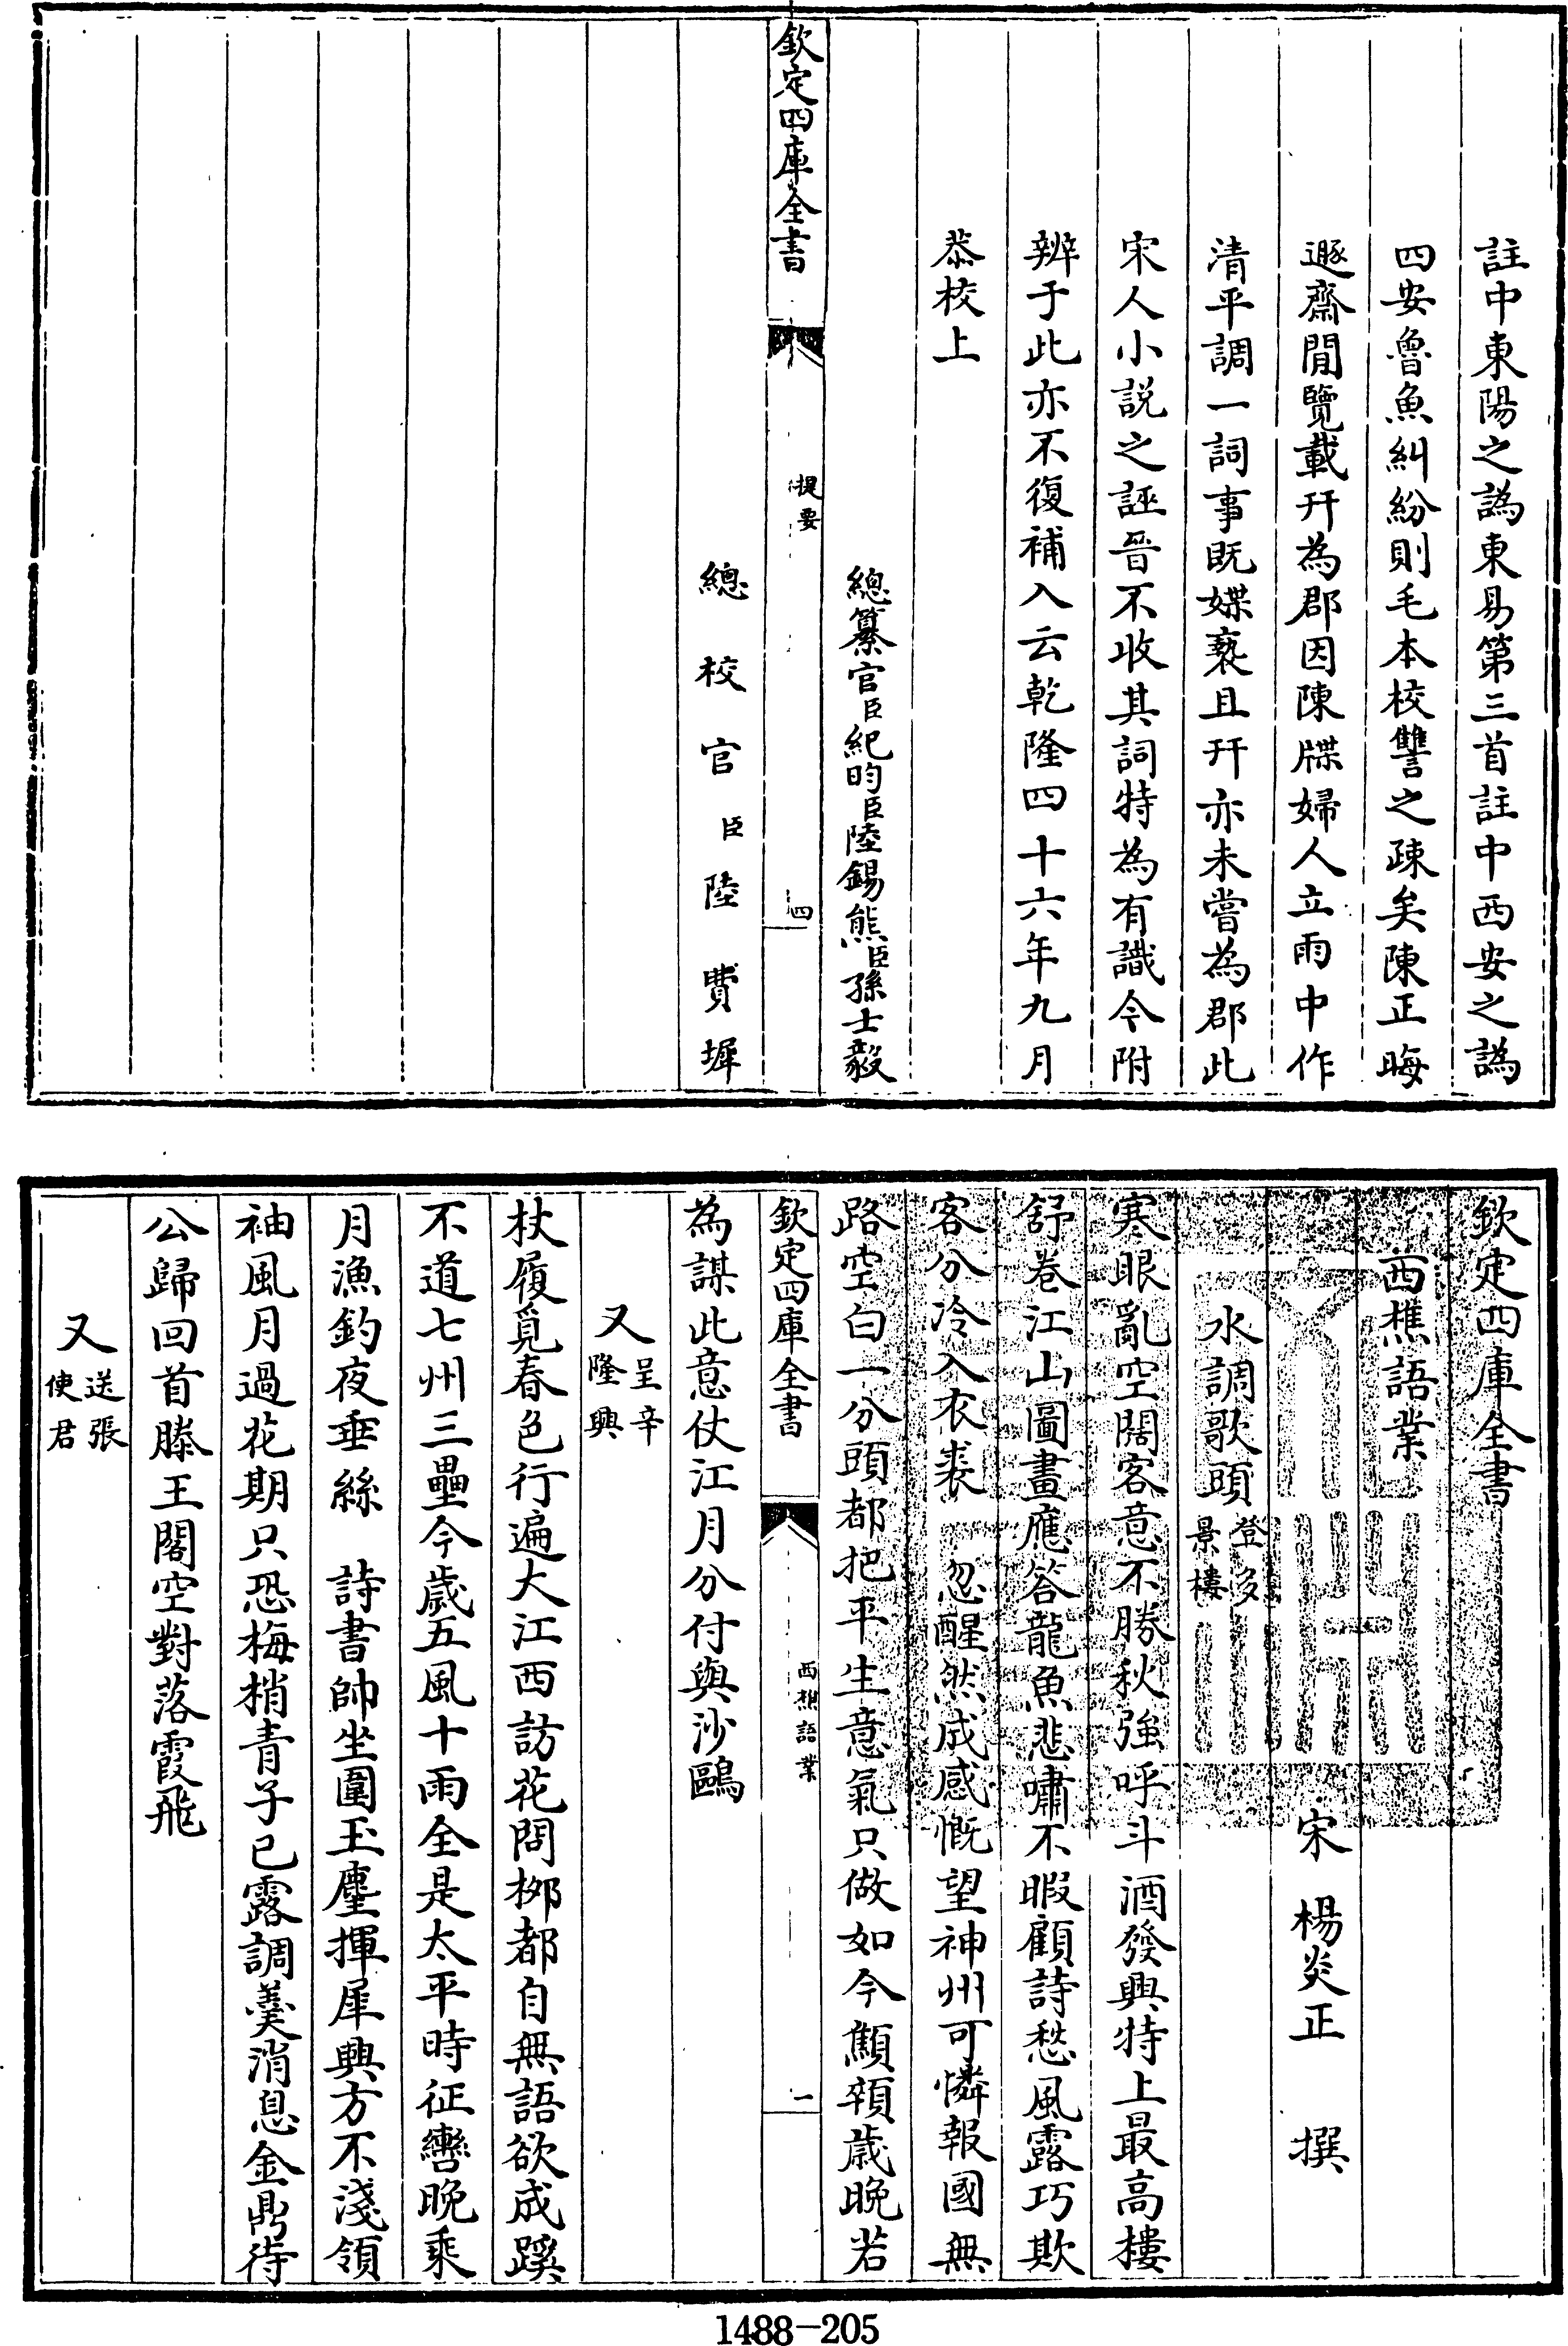 註中東陽之譌東易第三首註中西安之譌
四安魯魚糾紛則毛本校讐之疎矣陳正晦
遯齋閒覽載幵為郡因陳牒婦人立雨中作
清平調一詞事既媟褻且幵亦未嘗為郡此
宋人小説之誣晉不收其詞特為有識今附
辨于此亦不復補入云乾隆四十六年九月
恭校上
總纂官臣紀昀臣陸錫熊臣孫士毅
欽定四庫全書 提要 四
總校官臣陸費墀
欽定四庫全書
西樵語業
宋 楊炎正 撰
水調歌頭 登多景樓
寒眼亂空闊客意不勝秋強呼斗酒發興特上最高樓
舒卷江山圖畫應答龍魚悲嘯不暇顧詩愁風露巧欺
客分冷入衣裘 忽醒然成感慨望神州可憐報國無
路空白一分頭都把平生意氣只做如今顦顇歲晚若
欽定四庫全書 西樵語業 一
為謀此意仗江月分付與沙鷗
又 呈辛隆興
杖履覓春色行遍大江西訪花問栁都自無語欲成蹊
不道七州三壘今歲五風十雨全是太平時征轡晚乘
月漁釣夜垂絲 詩書帥坐圍玉麈揮犀興方不淺領
袖風月過花期只恐梅梢青子已露調羹消息金鼎待
公歸回首滕王閣空對落霞飛
又 送張使君
1488-205